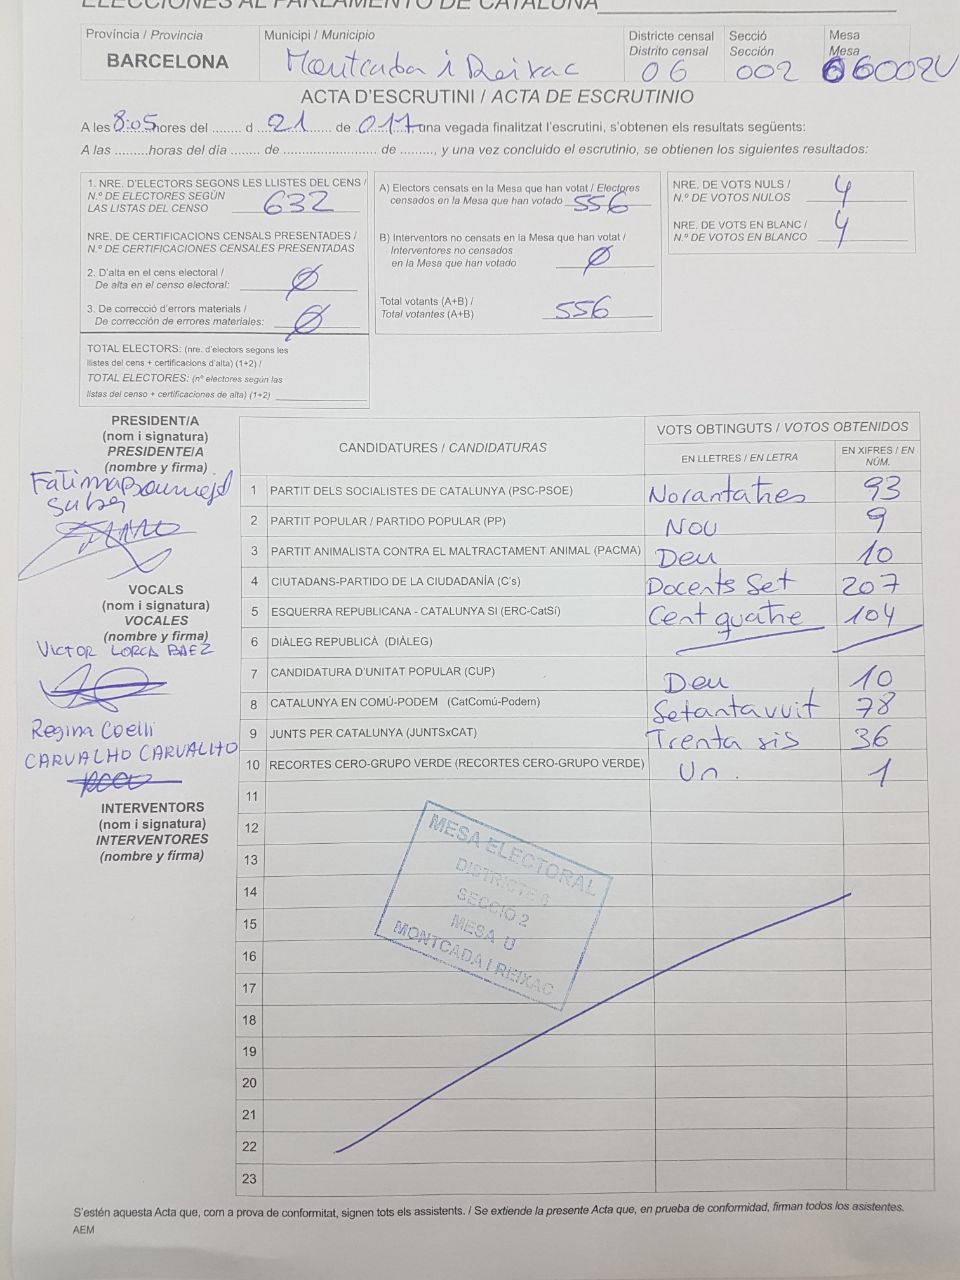 ELECCIONES AL PARLAMENTO DE CATALUÑA
Província / Provincia
BARCELONA
Municipi / Municipio
Montcada i Reixac
Districte censal
Distrito censal
06
Secció
Sección
002
Mesa
Mesa
06002U
ACTA D'ESCRUTINI / ACTA DE ESCRUTINIO
A les 8:05 hores del ........ d 21 de 017 una vegada finalitzat l'escrutini, s'obtenen els resultats següents:
A las .........horas del día ........ de .......................... de ........., y una vez concluido el escrutinio, se obtienen los siguientes resultados:
1. NRE. D'ELECTORS SEGONS LES LLISTES DEL CENS /
N.º DE ELECTORES SEGÚN
LAS LISTAS DEL CENSO 632
NRE. DE CERTIFICACIONS CENSALS PRESENTADES /
N.º DE CERTIFICACIONES CENSALES PRESENTADAS
2. D'alta en el cens electoral /
De alta en el censo electoral: Ø
3. De correcció d'errors materials /
De corrección de errores materiales: Ø
TOTAL ELECTORS: (nre. d'electors segons les
llistes del cens + certificacions d'alta) (1+2) /
TOTAL ELECTORES: (nº electores según las
listas del censo + certificaciones de alta) (1+2)
A) Electors censats en la Mesa que han votat / Electores
censados en la Mesa que han votado 556
B) Interventors no censats en la Mesa que han votat /
Interventores no censados
en la Mesa que han votado Ø
Total votants (A+B) /
Total votantes (A+B) 556
NRE. DE VOTS NULS /
N.º DE VOTOS NULOS 4
NRE. DE VOTS EN BLANC /
N.º DE VOTOS EN BLANCO 4
PRESIDENT/A
(nom i signatura)
PRESIDENTE/A
(nombre y firma)
Fatima
VOCALS
(nom i signatura)
VOCALES
(nombre y firma)
VICTOR LORCA BAEZ
Regina Coelli
CARVALHO CARVALHO
INTERVENTORS
(nom i signatura)
INTERVENTORES
(nombre y firma)
CANDIDATURES / CANDIDATURAS
VOTS OBTINGUTS / VOTOS OBTENIDOS
EN LLETRES / EN LETRA
EN XIFRES / EN
NÚM.
1 PARTIT DELS SOCIALISTES DE CATALUNYA (PSC-PSOE) Norantatres 93
2 PARTIT POPULAR / PARTIDO POPULAR (PP) NOU 9
3 PARTIT ANIMALISTA CONTRA EL MALTRACTAMENT ANIMAL (PACMA) Deu 10
4 CIUTADANS-PARTIDO DE LA CIUDADANÍA (C's) Docents Set 207
5 ESQUERRA REPUBLICANA - CATALUNYA SI (ERC-CatSí) Cent quatre 104
6 DIÀLEG REPUBLICÀ (DIÀLEG)
7 CANDIDATURA D'UNITAT POPULAR (CUP) Deu 10
8 CATALUNYA EN COMÚ-PODEM (CatComú-Podem) Setanta vuit 78
9 JUNTS PER CATALUNYA (JUNTSxCAT) Trenta sis 36
10 RECORTES CERO-GRUPO VERDE (RECORTES CERO-GRUPO VERDE) Un. 1
11
12
13
14
15
16
17
18
19
20
21
22
23
MESA ELECTORAL
DISTRICTE 6
SECCIO 2
MESA U
MONTCADA I REIXAC
S'estén aquesta Acta que, com a prova de conformitat, signen tots els assistents. / Se extiende la presente Acta que, en prueba de conformidad, firman todos los asistentes.
AEM